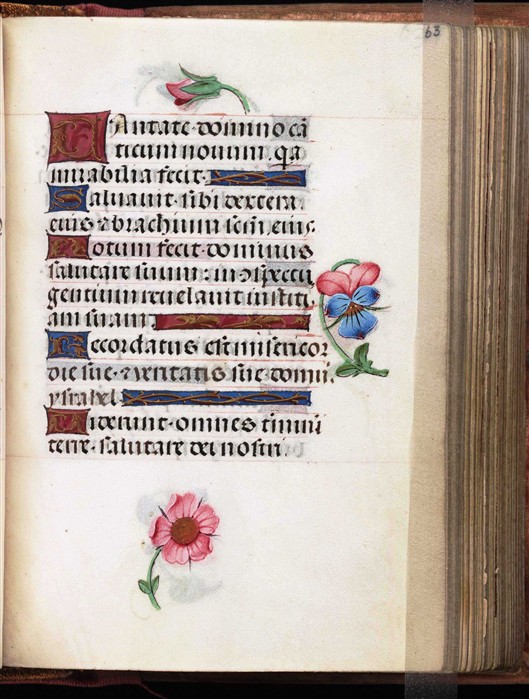 63
Cantate domino cā
ticum novum. qa
mirabilia fecit.
Salvavit sibi dextera
eius & brachium scm̄ eius.
Notum fecit dominus
salutare suum: in ɔspectu
gentium revelavit iusti
am suam.
Recordatus est misericor
die sue. & veritatis sue domui
ysrahel.
Viderunt omnes timini
terre. salutare dei nostri.